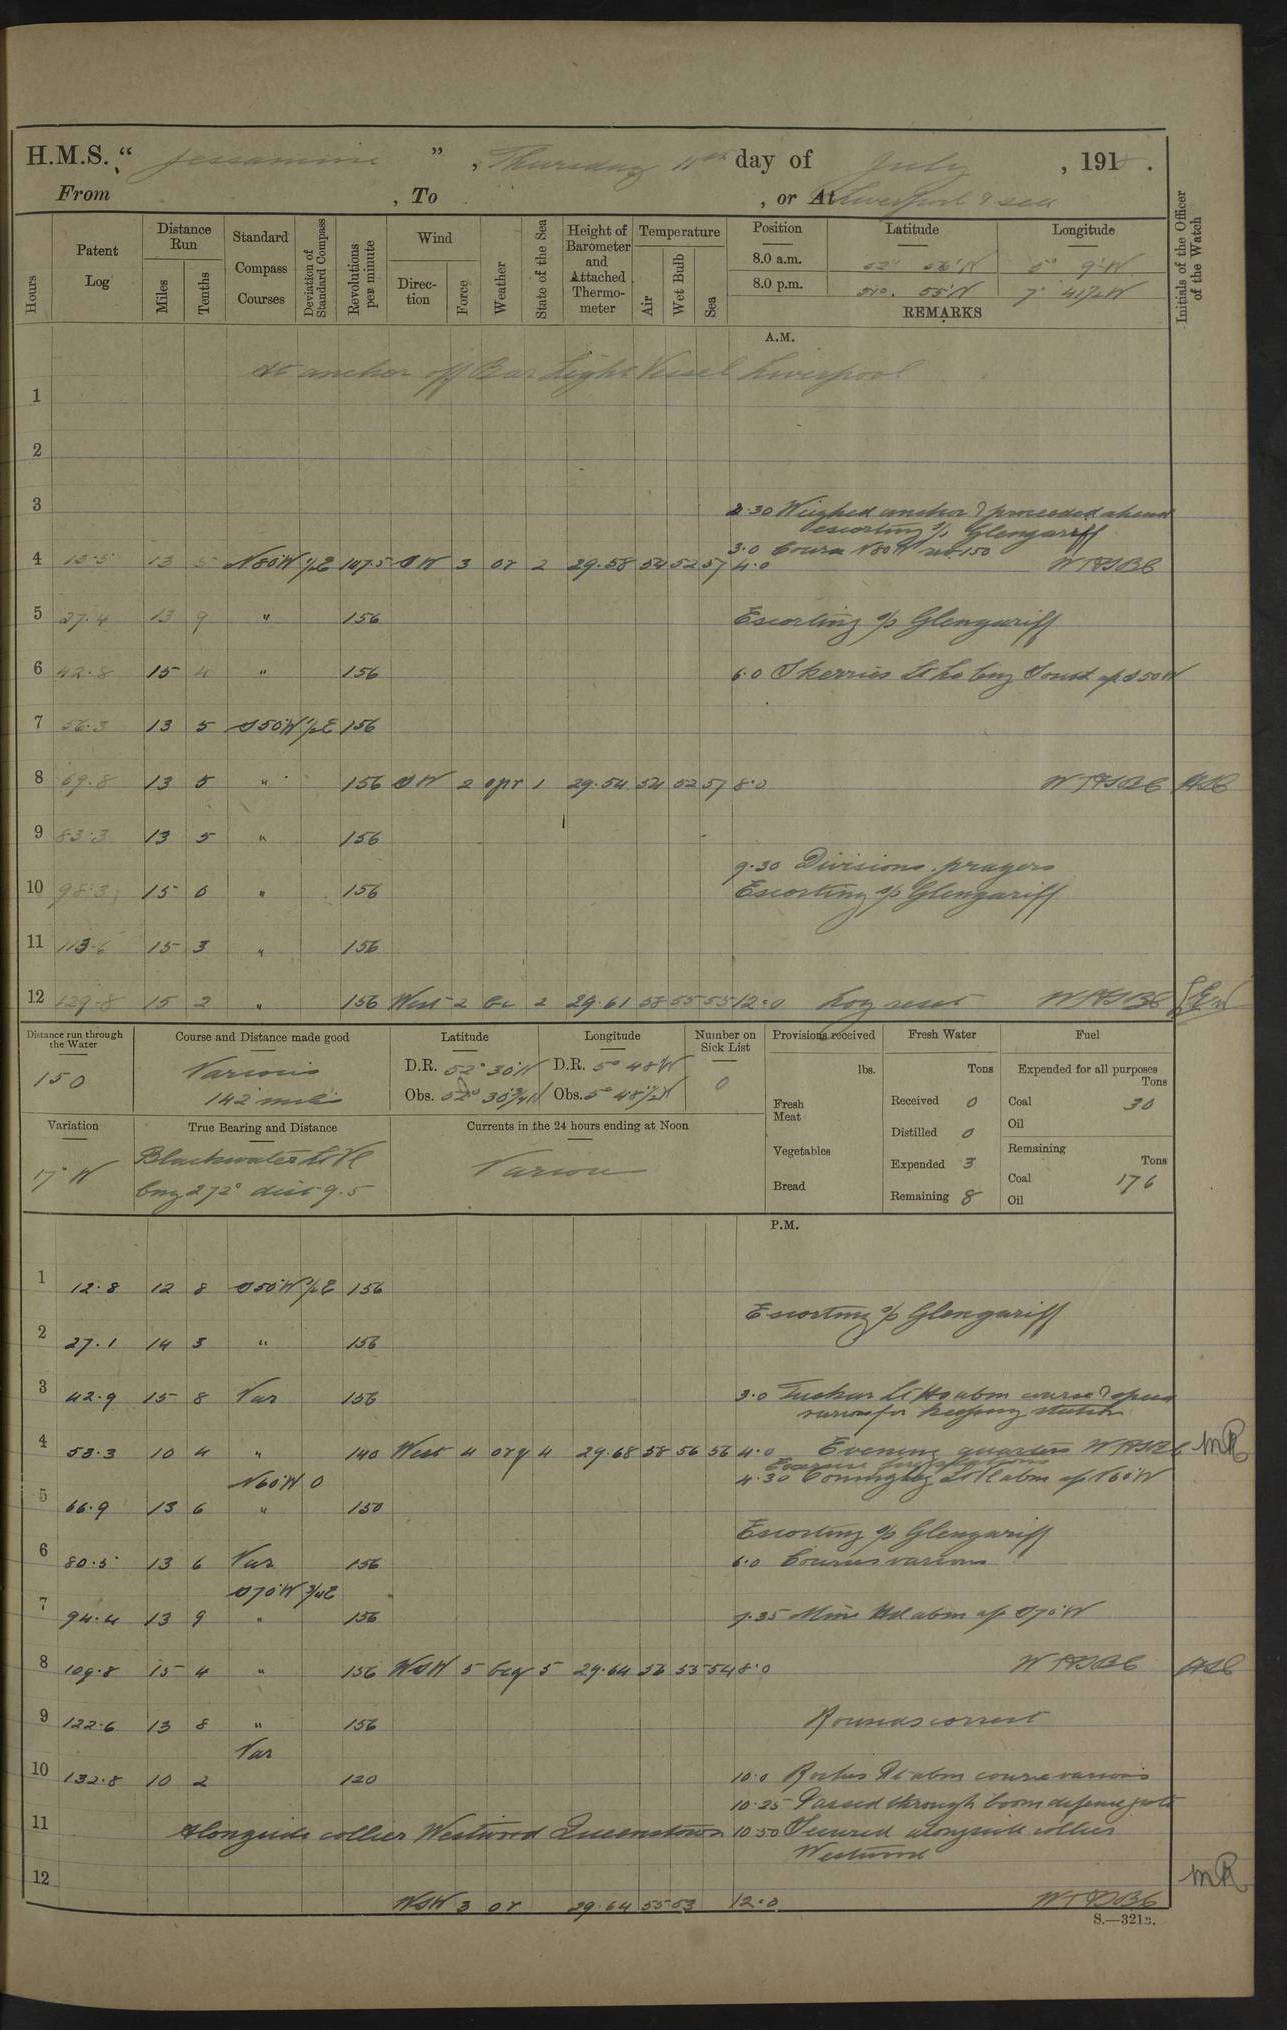 H.M.S. “ Jessamine ” , Thursday 11th day of July , 1918 .
From , To , or At Liverpool & sea
Hours
Patent Log
Distance Run
Miles
Tenths
Standard Compass Courses
Deviation of Standard Compass
Revolutions per minute
Wind
Direction
Force
Weather
State of the Sea
Height of Barometer and Attached Thermometer
Temperature
Air
Wet Bulb
Sea
Position Latitude Longitude
8.0 a.m. 52° 56'N 5° 9'W
8.0 p.m. 51°. 55'N 7° 41½W
REMARKS
Initials of the Officer of the Watch
A.M.
At anchor off Bar Light Vessel Liverpool
1
2
3 2.30 Weighed anchor & proceeded ahead
escorting s/s Glengariff
3.0 Course N80W rev 150
4 13.5 13 5 N80W ½E 147.5 SW 3 or 2 29.58 54 52 57 4.0
5 27.4 13 9 " 156 Escorting s/s Glengariff
6 42.8 15 4 " 156 6.0 Skerries Lt Ho bng South a/c S50W
7 56.3 13 5 S50W ½E 156
8 69.8 13 5 " 156 SW 2 opr 1 29.54 54 52 57 8.0
9 83.3 13 5 " 156
9.30 Divisions. prayers
10 98.3 15 0 " 156 Escorting s/s Glengariff
11 113.6 15 3 " 156
12 129.8 15 2 " 156 West 2 bc 2 29.61 58 55 55 12.0 Log reset
Distance run through the Water
150
Course and Distance made good
Various
142 miles
Latitude
D.R. 52° 30'N
Obs. 52° 30¾N
Longitude
D.R. 5° 48'W
Obs. 5° 48½W
Number on Sick List
0
Provisions received
lbs.
Fresh Meat
Vegetables
Bread
Fresh Water
Tons
Received 0
Distilled 0
Expended 3
Remaining 8
Fuel
Expended for all purposes
Tons
Coal 30
Oil
Remaining
Tons
Coal 176
Oil
Variation
17° W
True Bearing and Distance
Blackwater Lt Vl
bng 272° dist 9.5
Currents in the 24 hours ending at Noon
Various
P.M.
1 12.8 12 8 S50W ½E 156
Escorting s/s Glengariff
2 27.1 14 3 " 156
3 42.9 15 8 Var 156 3.0 Tuskar Lt Ho abm course & speed
various for keeping station
4 53.3 10 4 " 140 West 4 orq 4 29.68 58 56 56 4.0 Evening quarters
Exercise fire stations
N60W 0 4.30 Coningbeg Lt Vl abm a/c N60W
5 66.9 13 6 " 150
Escorting s/s Glengariff
6 80.5 13 6 Var 156 6.0 Courses various
S70W ¾E
7 94.4 13 9 " 156 7.35 Mine Hd abm a/c S70W
8 109.8 15 4 " 156 WSW 5 bcq 5 29.64 56 55 54 8.0
9 122.6 13 8 " 156 Rounds correct
Var
10 132.8 10 2 120 10.0 Roches Pt abm course various
10.25 Passed through boom defense gate
11 Alongside collier Westwood Queenstown 10.50 Secured alongside collier
Westwood
12
WSW 3 or 29.64 55 53 12.0
S.—321B.